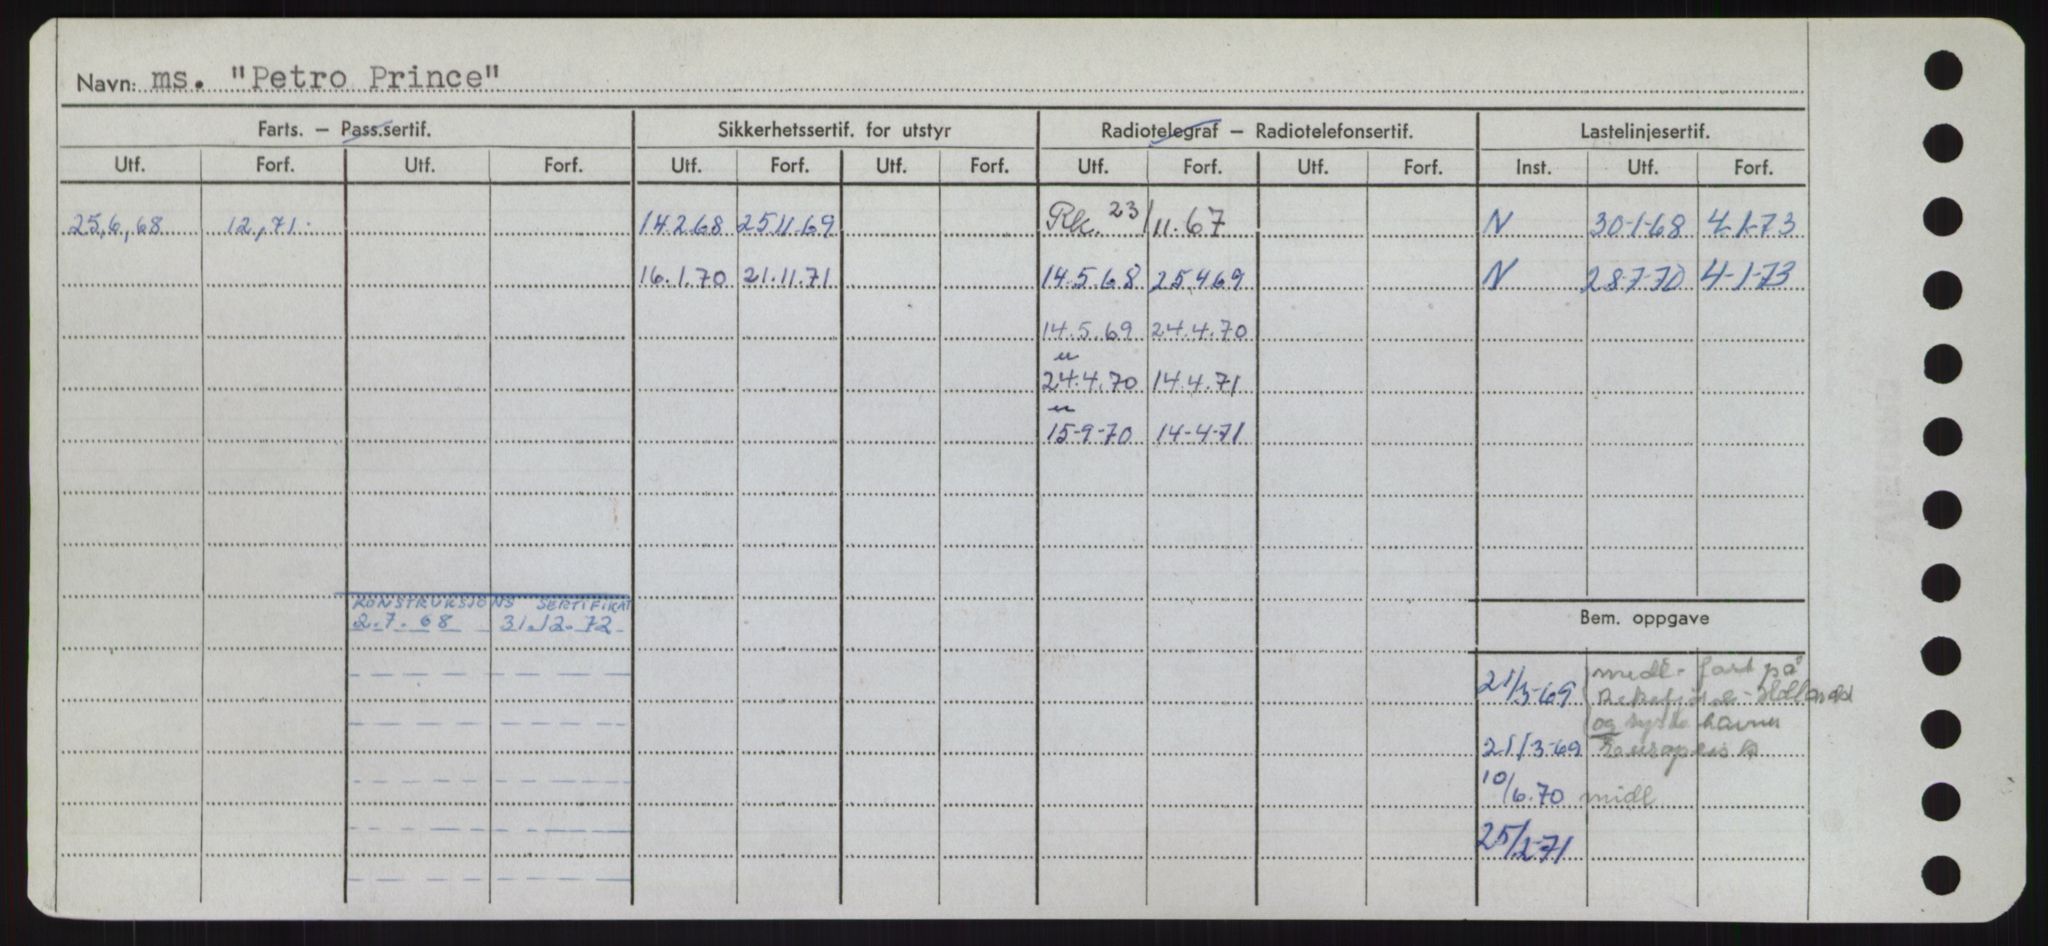 Navn: ms. "Petro Prince"
Farts. – Pass.sertif. Sikkerhetssertif. for utstyr Radiotelegraf – Radiotelefonsertif. Lastelinjesertif.
Utf. Forf. Utf. Forf. Utf. Forf. Utf. Forf. Utf. Forf. Utf. Forf. Inst. Utf. Forf.
25,6,68 12,71. 14.2.68 25.11.69 Rk. 23/11.67 N 30-1-68 4-1-73
16.1.70 21.11.71 14.5.68 25.4.69 N 28-7-70 4-1-73
14.5.69 24.4.70
u
24.4.70 14.4.71
u
15-9-70 14-4-71
KONSTRUKSJONS SERTIFIKAT
2.7.68 31.12.72
Bem. oppgave
21/3-69 midl. fart på
Rekefjord - Holland
og tyske havner
21/3-69 Europeisk
10/6.70 midl
25/2-71